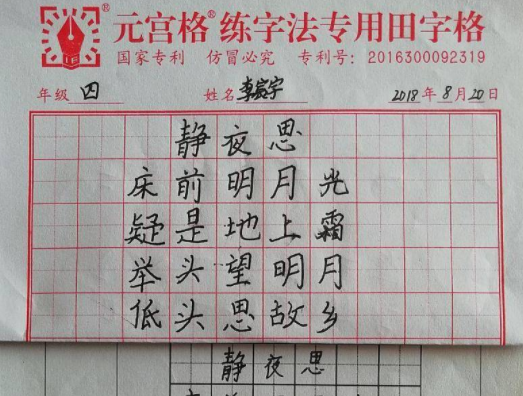 元宫格®练字法专用田字格
国家专利 仿冒必究 专利号：2016300092319
年级 四 姓名 李宸宇 2018年8月20日
静夜思
床前明月光
疑是地上霜
举头望明月
低头思故乡
静夜思